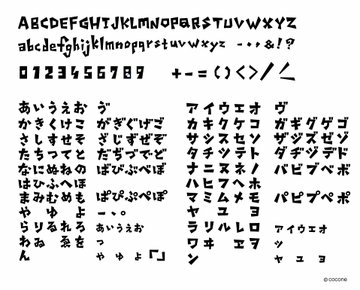 ABCDEFGHIJKLMNOPQRSTUVWXYZ
abcdefghijklmnopqrstuvwxyz -・,&!?
0123456789 +-=()<>/∠
あいうえお ゔ
かきくけこ がぎぐげご
さしすせそ ざじずぜぞ
たちつてと だぢづでど
なにぬねの ばびぶべぼ
はひふへほ
まみむめも ぱぴぷぺぽ
や ゆ よ ー、。
らりるれろ ぁぃぅぇぉ
わゐ ゑを っ
ん ゃ ゅ ょ「」
アイウエオ ヴ
カキクケコ ガギグゲゴ
サシスセソ ザジズゼゾ
タチツテト ダヂヅデド
ナニヌネノ バビブベボ
ハヒフヘホ
マミムメモ パピプペポ
ヤ ユ ヨ
ラリルレロ ァィゥェォ
ワヰ ヱヲ ッ
ン ャ ュ ョ
© cocone